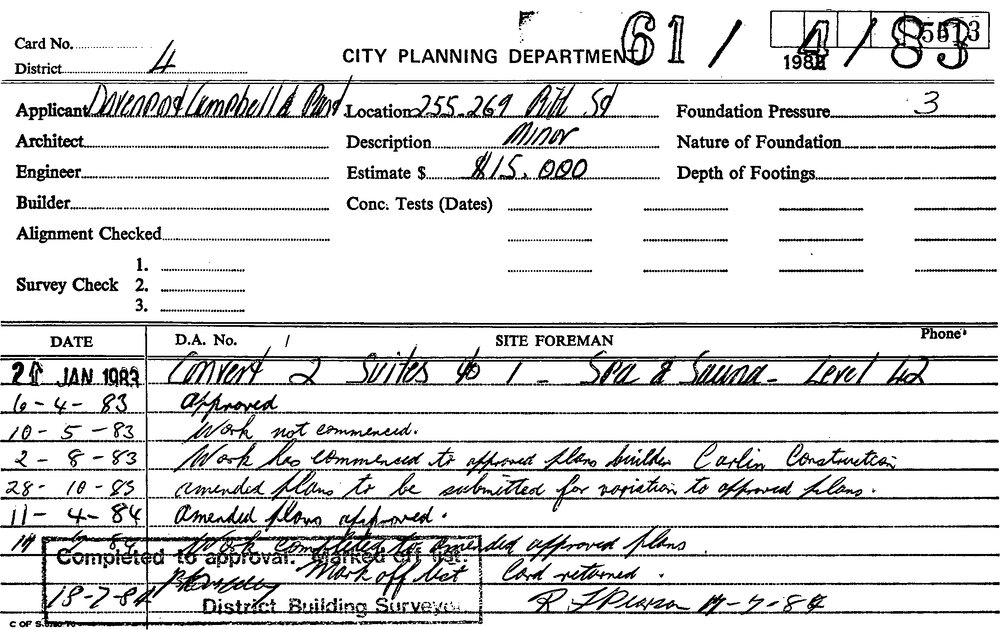 61 / 4 / 83
5513
Card No.
CITY PLANNING DEPARTMENT
198
District 4
Applicant Davenport Campbell & Part Location 255-269 Pitt St Foundation Pressure 3
Architect Description Minor Nature of Foundation
Engineer Estimate $ $15,000 Depth of Footings
Builder Conc. Tests (Dates)
Alignment Checked
1.
Survey Check 2.
3.
DATE D.A. No. / SITE FOREMAN Phone
21 JAN 1983 Convert 2 Suites to 1 - Spa & Sauna - Level 42
6-4-83 approved
10-5-83 Work not commenced.
2-8-83 Work has commenced to approved plans builder Carlin Construction
28-10-83 amended plans to be submitted for variation to approved plans.
11-4-84 Amended plans approved.
17 84 Work completed to amended approved plans.
Completed to approval. Marked off list.
Mark off list Card returned.
18-7-84 R J Pearson 17-7-84
District Building Surveyor
C OF S